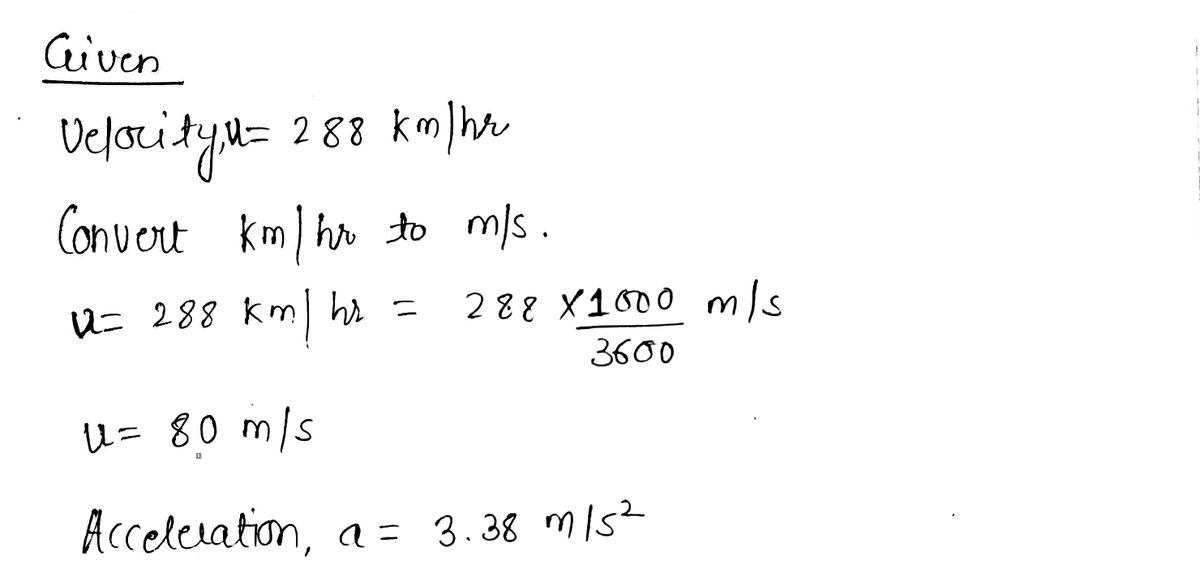 Given
Velocity, u = 288 km/hr
Convert km/hr to m/s.
u = 288 km/hr = 288 × 1000/3600 m/s
u = 80 m/s
Acceleration, a = 3.38 m/s²